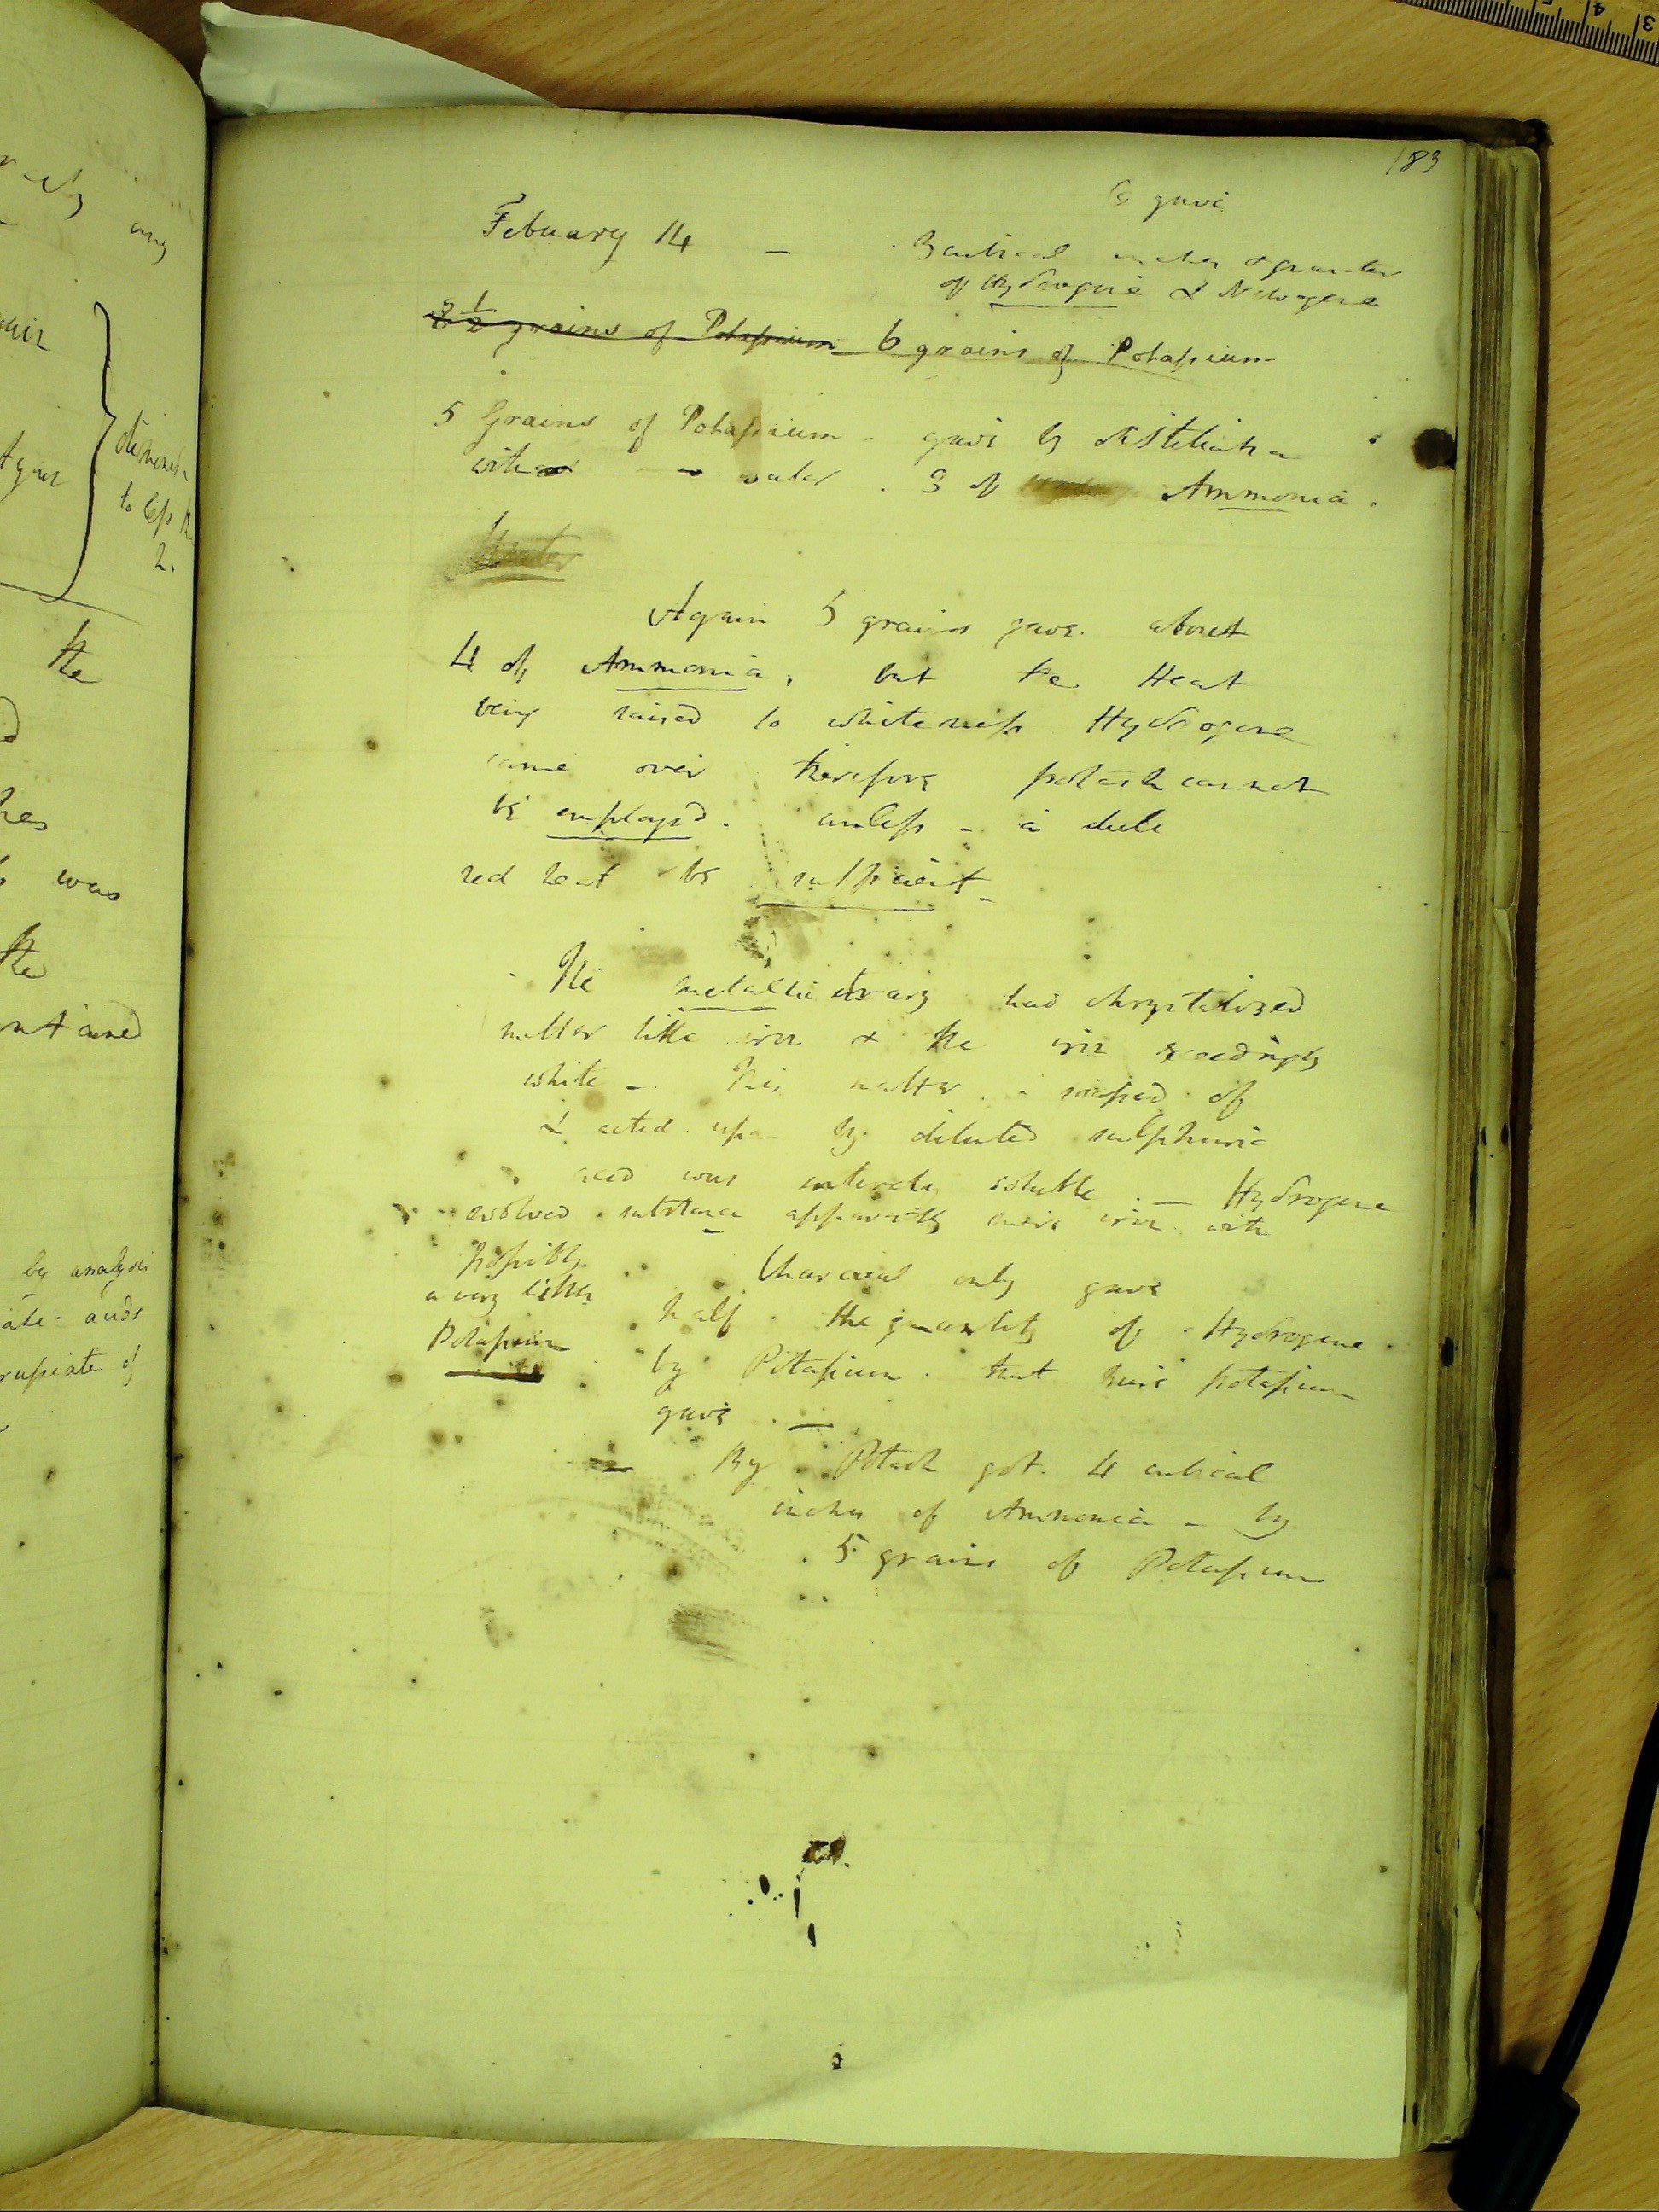 183
6 gave
Febuary 14 — 3 cubical inches & quarter
of Hydrogene & Nitrogene
2 1/2 grains of Potassium 6 grains of Potassium
5 Grains of Potassium - gave by distillation
with water . 3 of Ammonia .
Water
Again 5 grains gave about
4 of Ammonia ; but the Heat
being raised to whiteness Hydrogene
came over therefore potash cannot
be employed . unless - a dull
red heat be sufficient -
The metallic had chrystalized
matter like iron & the iron exceedingly
white - This matter scraped of
& acted upon by diluted sulphuric
acid was entirely soluble . — Hydrogene
evolved substance apparently mere iron with
possibly
a very little
Potassium
Charcoal only gave
half the quantity of Hydrogene
by Potassium . that pure potassium
gave . —
— By Potash got . 4 cubical
inches of Ammonia - by
5 grains of Potassium
any
dimensn
to less than
2.
the
was
the
by analysis